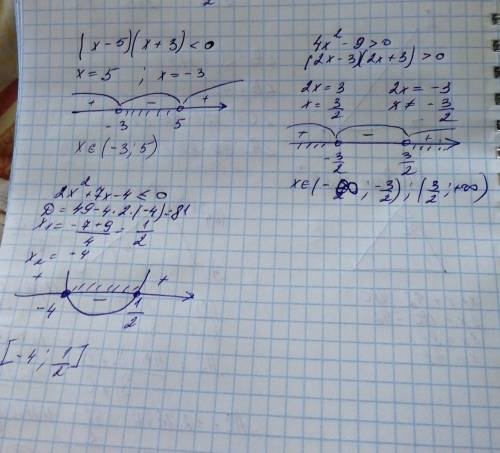 (x-5)(x+3)<0
x=5 ; x=-3
+ - +
-3 5
x∈(-3; 5)
4x²-9>0
(2x-3)(2x+3)>0
2x=3 2x=-3
x=3/2 x≠-3/2
+ - +
-3/2 3/2
x∈(-∞; -3/2); (3/2; +∞)
2x²+7x-4≤0
D=49-4·2·(-4)=81
x₁=(-7+9)/4=1/2
x₂=-4
+ - +
-4 1/2
[-4; 1/2]